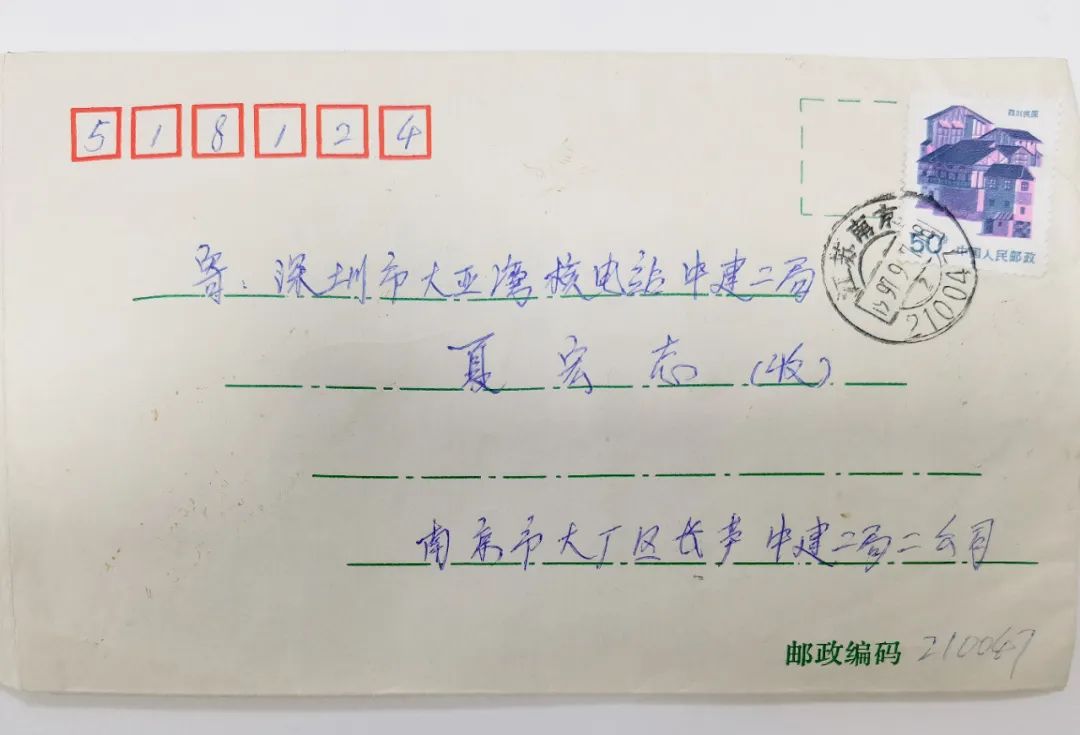 518124
四川民居
50 中国人民邮政
江苏南京
210047
寄：深圳市大亚湾核电站中建二局
夏宏志（收）
南京市大厂区长芦中建二局二公司
邮政编码 210047